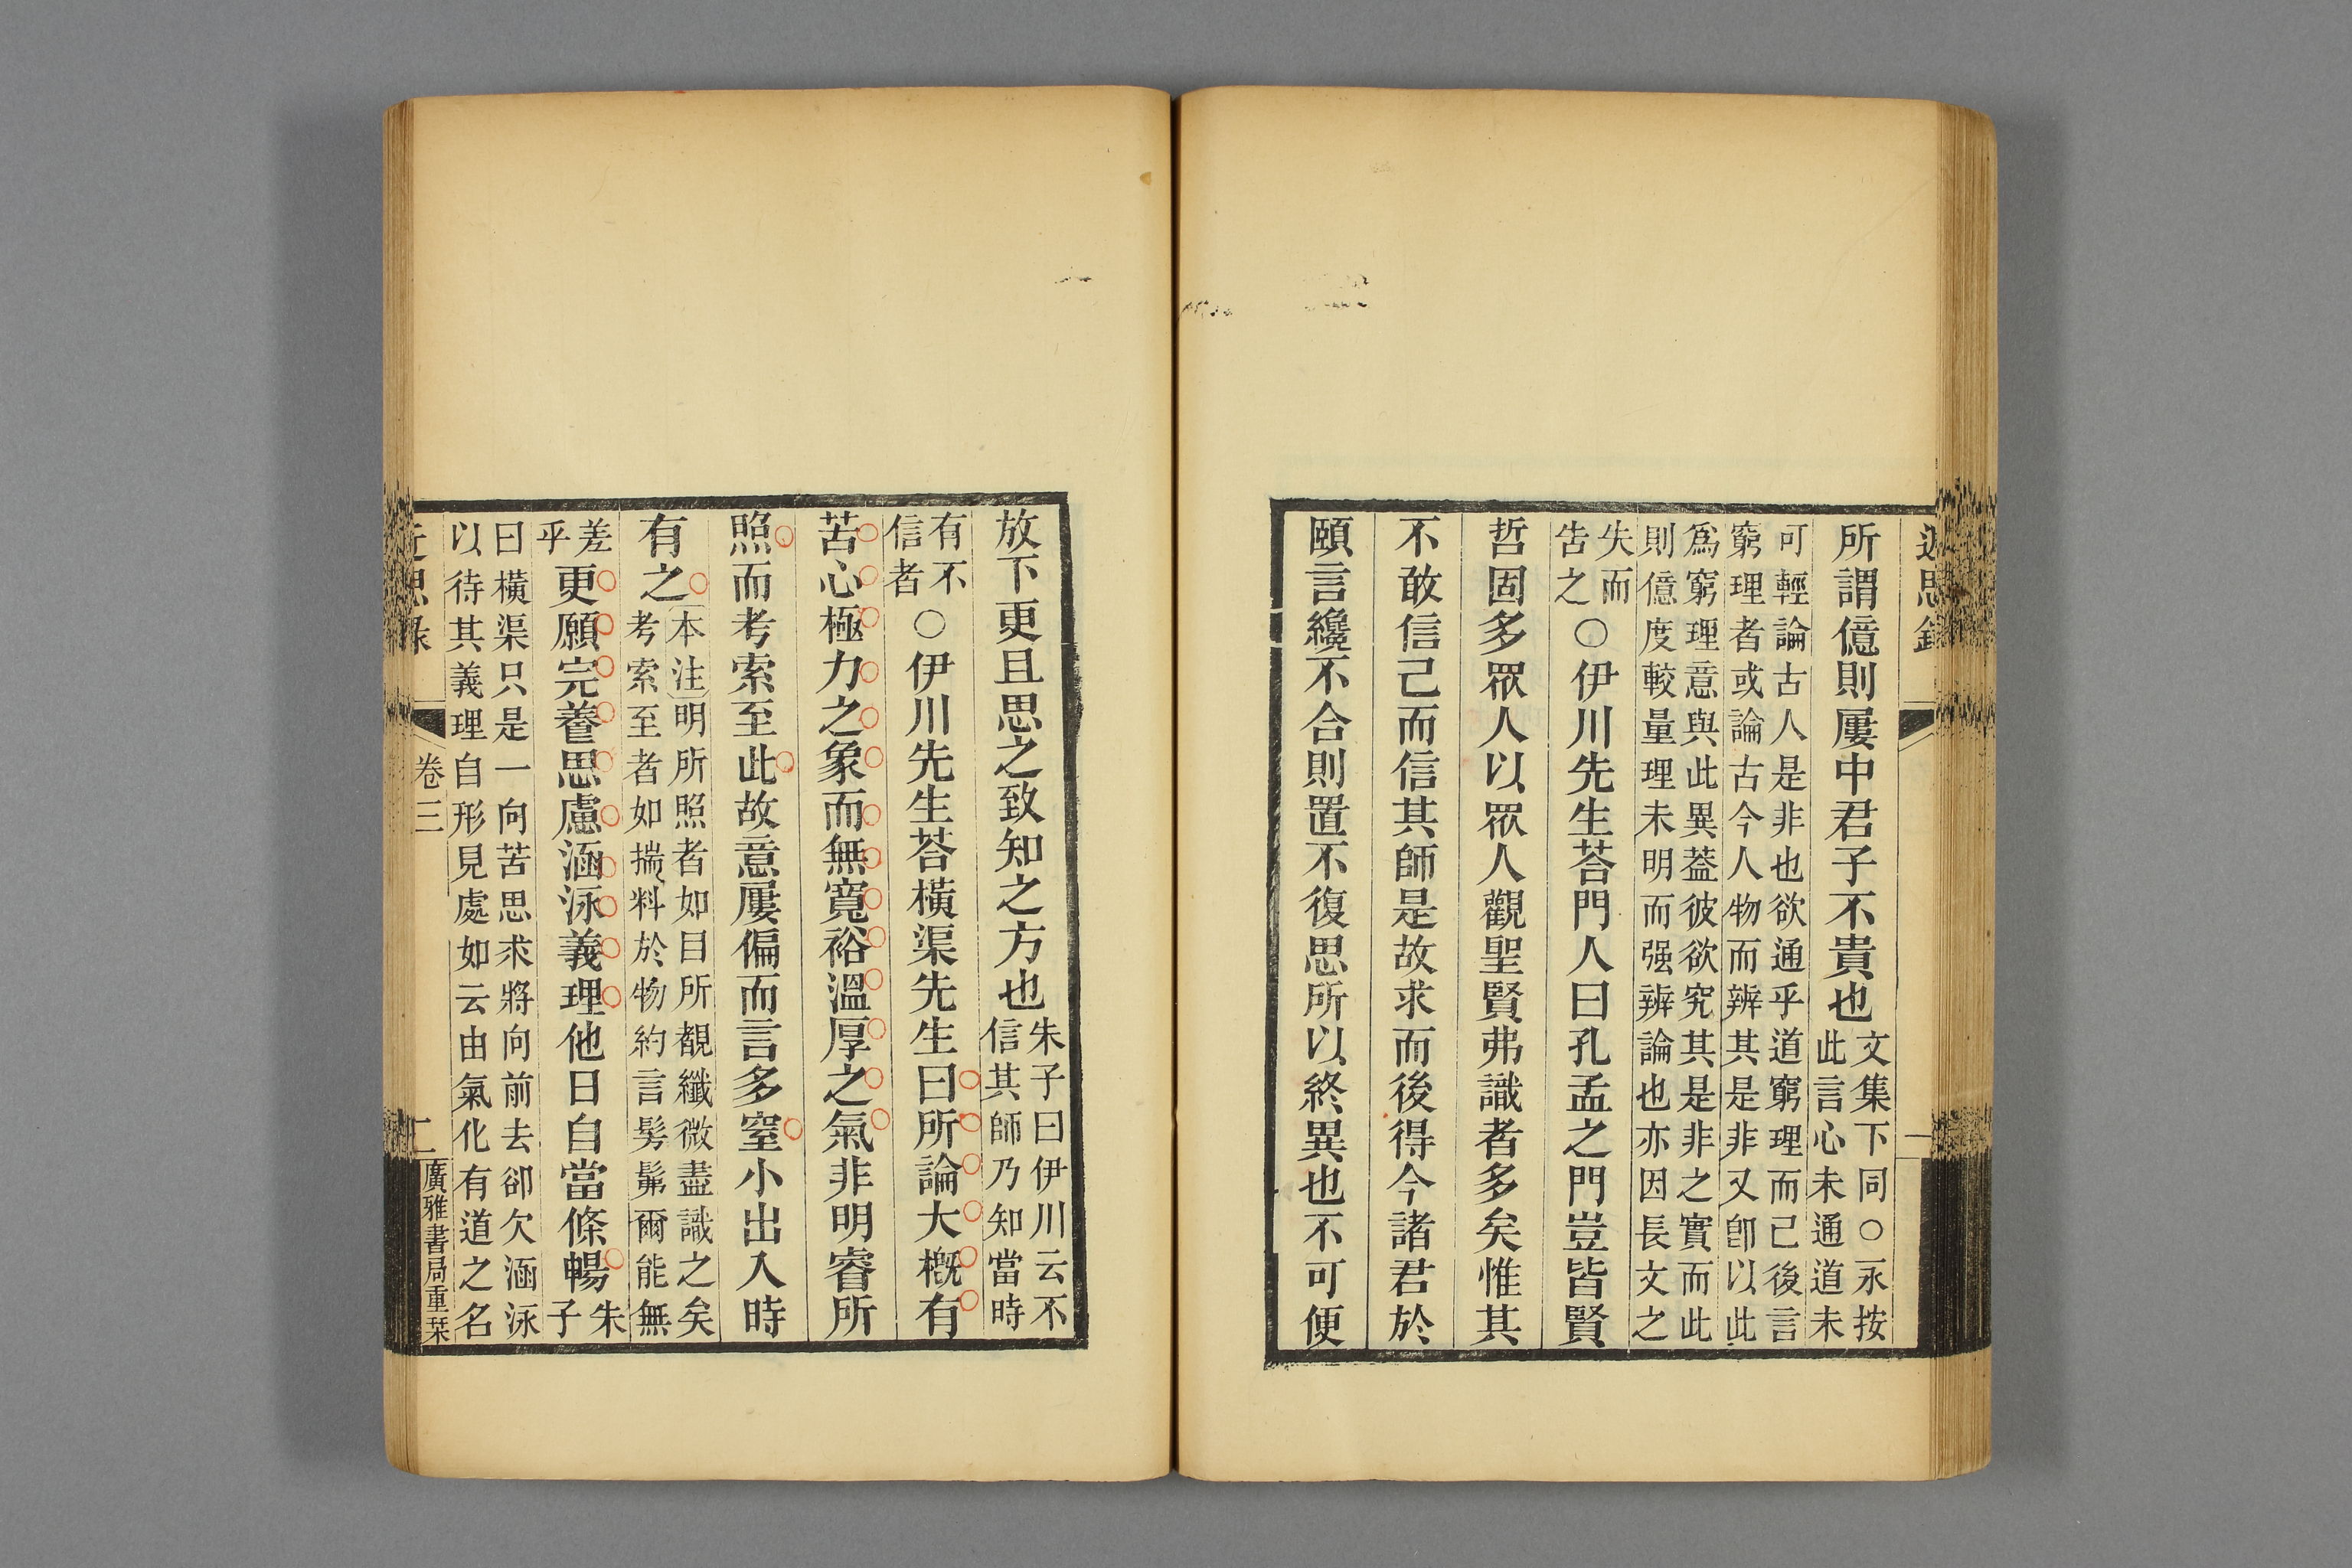 近思錄
一
所謂億則屢中君子不貴也
文集下同○永按
此言心未通道未
可輕論古人是非也欲通乎道窮理而已後言
窮理者或論古今人物而辨其是非又卽以此
爲窮理意與此異葢彼欲究其是非之實而此
則億度較量理未明而强辨論也亦因長文之
失而
告之
○伊川先生荅門人曰孔孟之門豈皆賢
哲固多眾人以眾人觀聖賢弗識者多矣惟其
不敢信己而信其師是故求而後得今諸君於
頤言纔不合則置不復思所以終異也不可便
放下更且思之致知之方也
朱子曰伊川云不
信其師乃知當時
有不
信者
○伊川先生荅橫渠先生曰所論大槪有
苦心極力之象而無寬裕溫厚之氣非明睿所
照而考索至此故意屢偏而言多窒小出入時
有之
本注明所照者如目所覩纖微盡識之矣
考索至者如揣料於物約言髣髴爾能無
差
乎
更願完養思慮涵泳義理他日自當條暢
朱
子
曰橫渠只是一向苦思求將向前去卻欠涵泳
以待其義理自形見處如云由氣化有道之名
近思錄
卷三
二
廣雅書局重栞